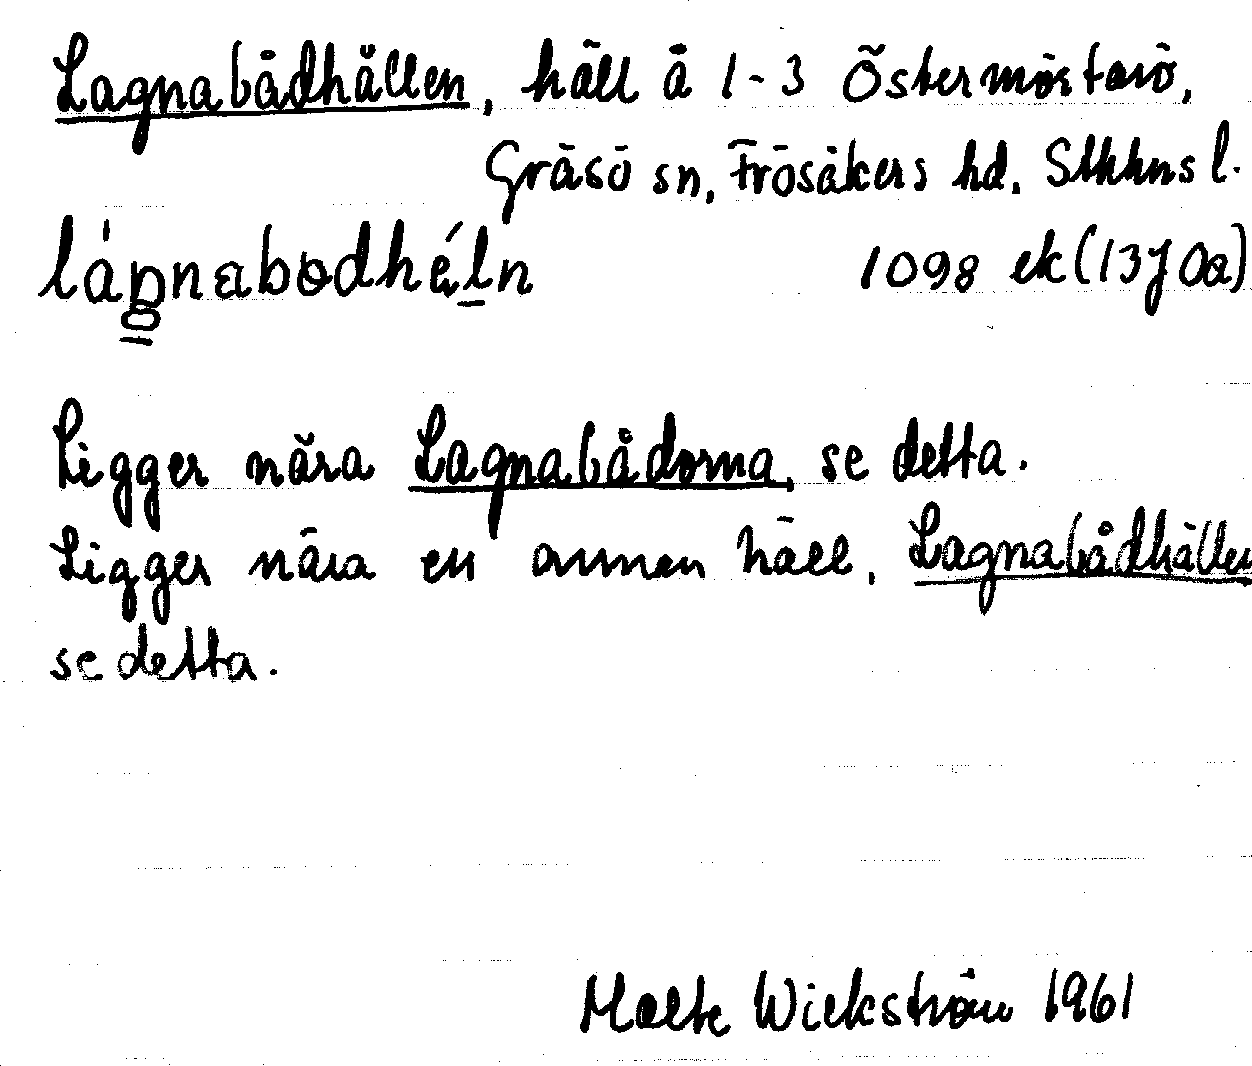 Lagnabådhällen, häll å 1-3 Östermörtarö,
Gräsö sn, Frösåkers hd, Sthlms l.
1098 ek (13J0a)
Ligger nära Lagnabådorna, se detta.
Ligger nära en annan häll, Lagnabådhällen
se detta.
Malte Wickström 1961